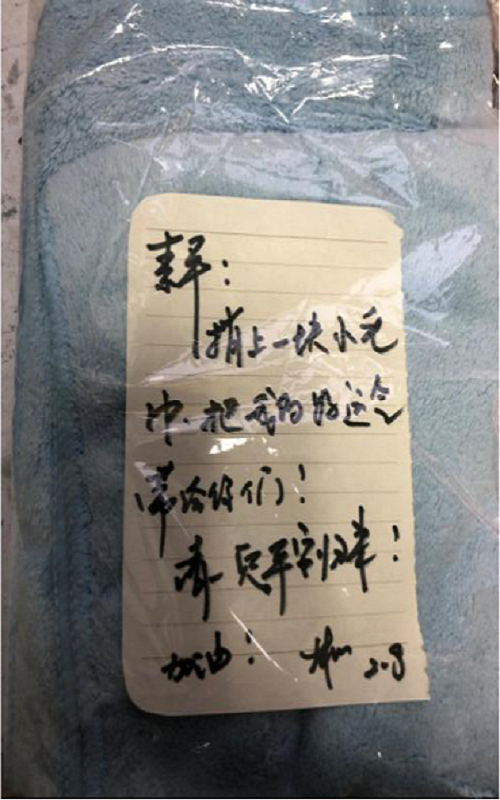 捎上一块小毛
巾.把我的好运气
带给你们！
平安归来！
加油！ 2.8